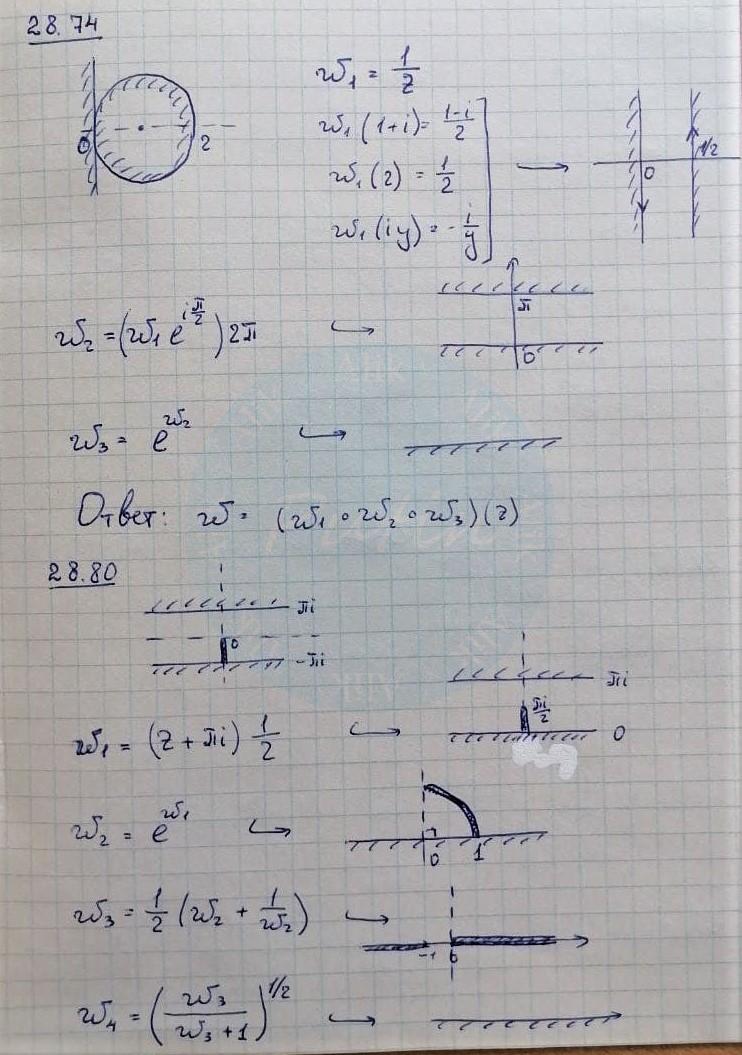 28.74
0 2
w₁ = 1/z
w₁(1+i) = (1-i)/2
w₁(2) = 1/2
w₁(iy) = -i/y
0 1/2
w₂ = (w₁e^{iπ/2})2π
π
0
w₃ = e^{w₂}
Ответ: w = (w₁∘w₂∘w₃)(z)
28.80
πi
0
-πi
πi
πi/2
0
w₁ = (z + πi) 1/2
w₂ = e^{w₁}
0 1
w₃ = 1/2 (w₂ + 1/w₂)
-1 0
w₄ = (w₃/(w₃+1))^{1/2}